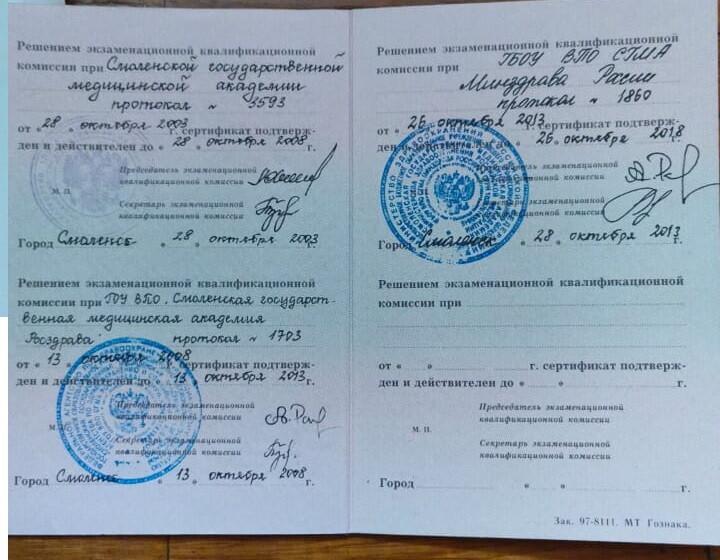 Решением экзаменационной квалификационной
комиссии при Смоленской государственной
медицинской академии
протокол № 3593
от « 28 » октября 2003 г. сертификат подтверж-
ден и действителен до « 28 » октября 2008 г.
Председатель экзаменационной
квалификационной комиссии
М. П.
Секретарь экзаменационной
квалификационной комиссии
Город Смоленск « 28 » октября 2003 г.
Решением экзаменационной квалификационной
комиссии при ГОУ ВПО. Смоленская государст-
венная медицинская академия
Росздрава протокол № 1703
от « 13 » октября 2008 г. сертификат подтверж-
ден и действителен до « 13 » октября 2013 г.
Председатель экзаменационной
квалификационной комиссии
М. П.
Секретарь экзаменационной
квалификационной комиссии
Город Смоленск « 13 » октября 2008 г.
Решением экзаменационной квалификационной
комиссии при ГБОУ ВПО СГМА
Минздрава России
протокол № 1860
от « 26 » октября 2013 г. сертификат подтверж-
ден и действителен до « 26 » октября 2018 г.
Председатель экзаменационной
квалификационной комиссии
Секретарь экзаменационной
квалификационной комиссии
Город Смоленск « 28 » октября 2013 г.
Решением экзаменационной квалификационной
комиссии при
от « » г. сертификат подтверж-
ден и действителен до « » г.
Председатель экзаменационной
квалификационной комиссии
М. П.
Секретарь экзаменационной
квалификационной комиссии
Город « » г.
Зак. 97-8111. МТ Гознака.